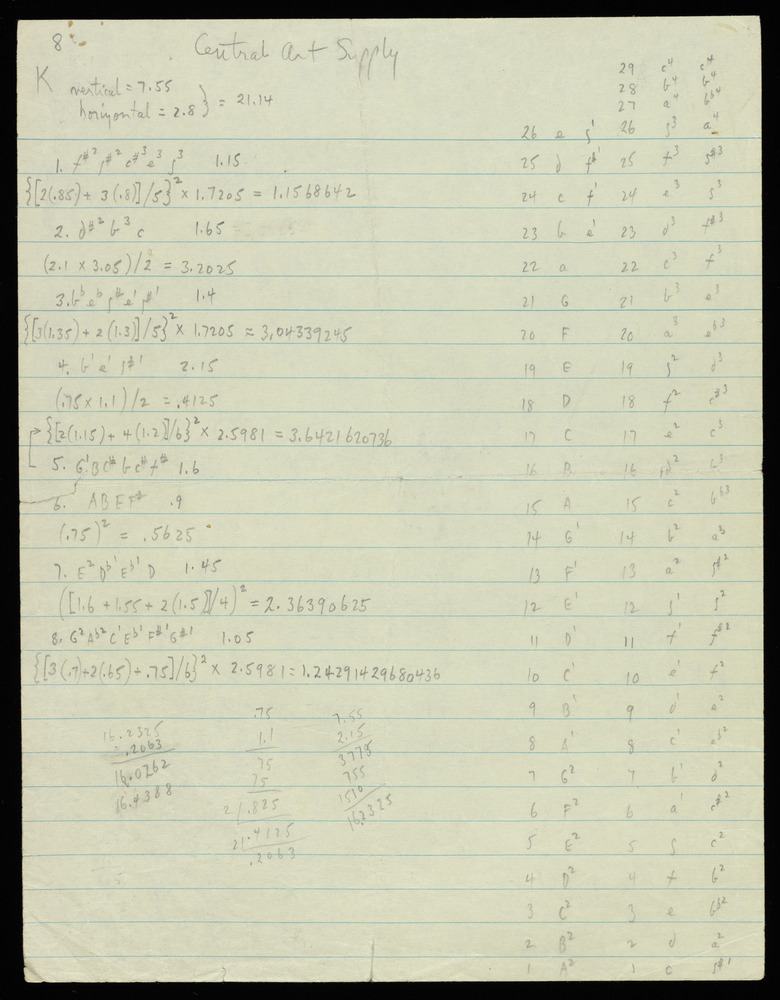 8
Central Art Supply
K vertical = 7.55
horizontal = 2.8 } = 21.14
1. f#² g#² c#³ e³ g³ 1.15
{[2(.85) + 3(.8)]/5}² × 1.7205 = 1.1568642
2. d#² b³ c 1.65
(2.1 × 3.05)/2 = 3.2025
3. b♭ e♭ g# e' g#' 1.4
{[3(1.35) + 2(1.3)]/5}² × 1.7205 = 3.04339245
4. b' e' g#' 2.15
(.75 × 1.1)/2 = .4125
{[2(1.15) + 4(1.2)]/6}² × 2.5981 = 3.6421620736
5. G' B c# b c# f# 1.6
6. A B E F# .9
(.75)² = .5625
7. E² D♭' E♭' D 1.45
([1.6 + 1.55 + 2(1.5)]/4)² = 2.36390625
8. G² A♭² C' E♭' F#' G#' 1.05
{[3(.7)+2(.65)+.75]/6}² × 2.5981 = 1.24291429680436
16.2325
-.2063
16.0262
16.4388
.75
1.1
75
75
2/.825
2/.4125
.2063
7.55
2.15
3775
755
1510
16.2325
29 c⁴ c⁴
28 b⁴ b⁴
27 a⁴ b♭⁴
26 e g' 26 g³ a⁴
25 d f#' 25 f³ g#³
24 c f' 24 e³ g³
23 b e' 23 d³ f#³
22 a 22 c³ f³
21 G 21 b³ e³
20 F 20 a³ e♭³
19 E 19 g² d³
18 D 18 f² c#³
17 C 17 e² c³
16 B 16 d² b³
15 A 15 c² b♭³
14 G' 14 b² a³
13 F' 13 a² g#²
12 E' 12 g' g²
11 D' 11 f' f#²
10 C' 10 e' f²
9 B' 9 d' e²
8 A' 8 c' e♭²
7 G² 7 b' d²
6 F² 6 a' c#²
5 E² 5 g c²
4 D² 4 f b²
3 C² 3 e b♭²
2 B² 2 d a²
1 A² 1 c g#'